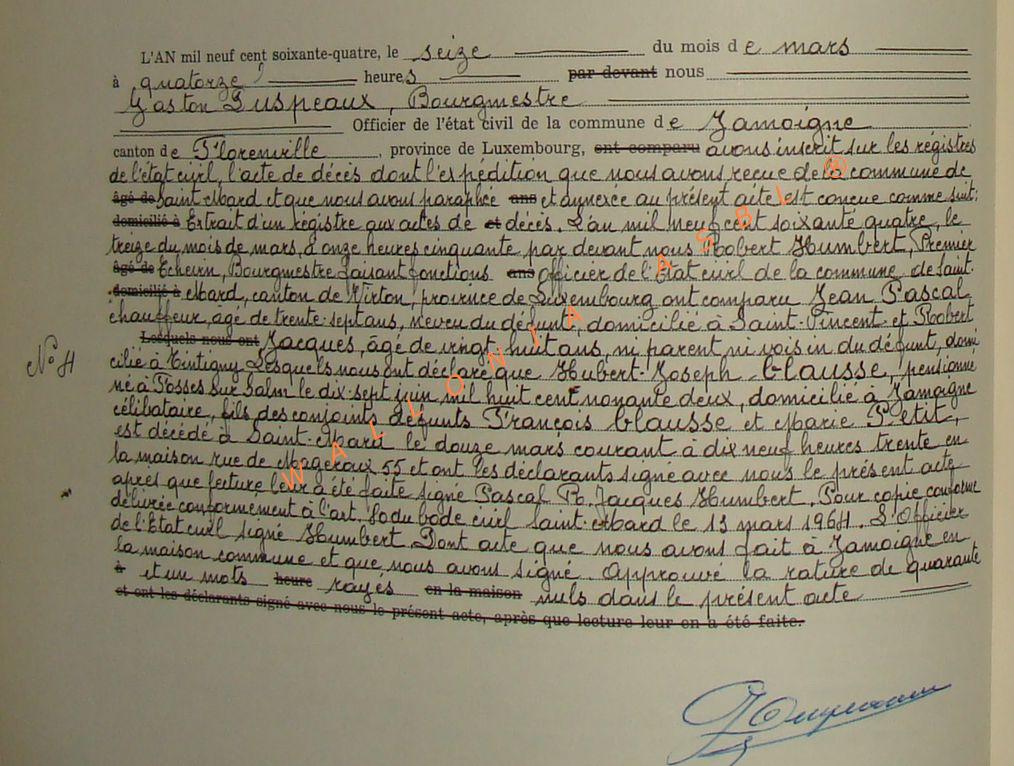 L'AN mil neuf cent soixante-quatre, le seize du mois de mars
à quatorze heures par devant nous
Gaston Luspeaux, Bourgmestre
Officier de l'état civil de la commune de Jamoigne
canton de Florenville, province de Luxembourg, ont comparu avons inscrit sur les régistres
de l'état civil, l'acte de décès dont l'expédition que nous avons recue de la commune de
âgé de Saint-Mard et que nous avons paraphée ans et annexée au présent acte est concue comme suit:
domicilié à Extrait d'un régistre aux actes de et décès. L'an mil neuf cent soixante quatre, le
treize du mois de mars, à onze heures cinquante par devant nous Robert Humbert, Premier
âgé de Echevin, Bourgmestre faisant fonctions ans Officier de l'Etat civil de la commune de Saint-
domicilié à Mard, canton de Virton, province de Luxembourg ont comparu Jean Pascal,
chauffeur, âgé de trente-sept ans, neveu du défunt, domicilié à Saint-Vincent et Robert
Lesquels nous ont Jacques, âgé de vingt huit ans, ni parent ni voisin du défunt, domi
N° 4
cilié à Tintigny Lesquels nous ont déclaré que Hubert-Joseph Clausse, pensionné
né à Rosses sur Salm le dix-sept juin mil huit cent nonante deux, domicilié à Jamoigne
célibataire, fils des conjoints défunts François Clausse et Marie Petit,
est décédé à Saint-Mard le douze mars courant à dix neuf heures trente en
la maison rue de Mageroux 55 et ont les déclarants signé avec nous le présent acte
après que lecture leur a été faite signé Pascal R. Jacques Humbert. Pour copie conforme
délivrée conformement à l'art. 80 du Code civil Saint-Mard le 13 mars 1964. L'Officier
de l'Etat civil signé Humbert. Dont acte que nous avons fait à Jamoigne en
la maison commune et que nous avons signé. Approuvé la rature de quarante
à et un mots heure rayés en la maison nuls dans le présent acte
et ont les déclarants signé avec nous le présent acte, après que lecture leur en a été faite.
WALLONIA ASBL ®